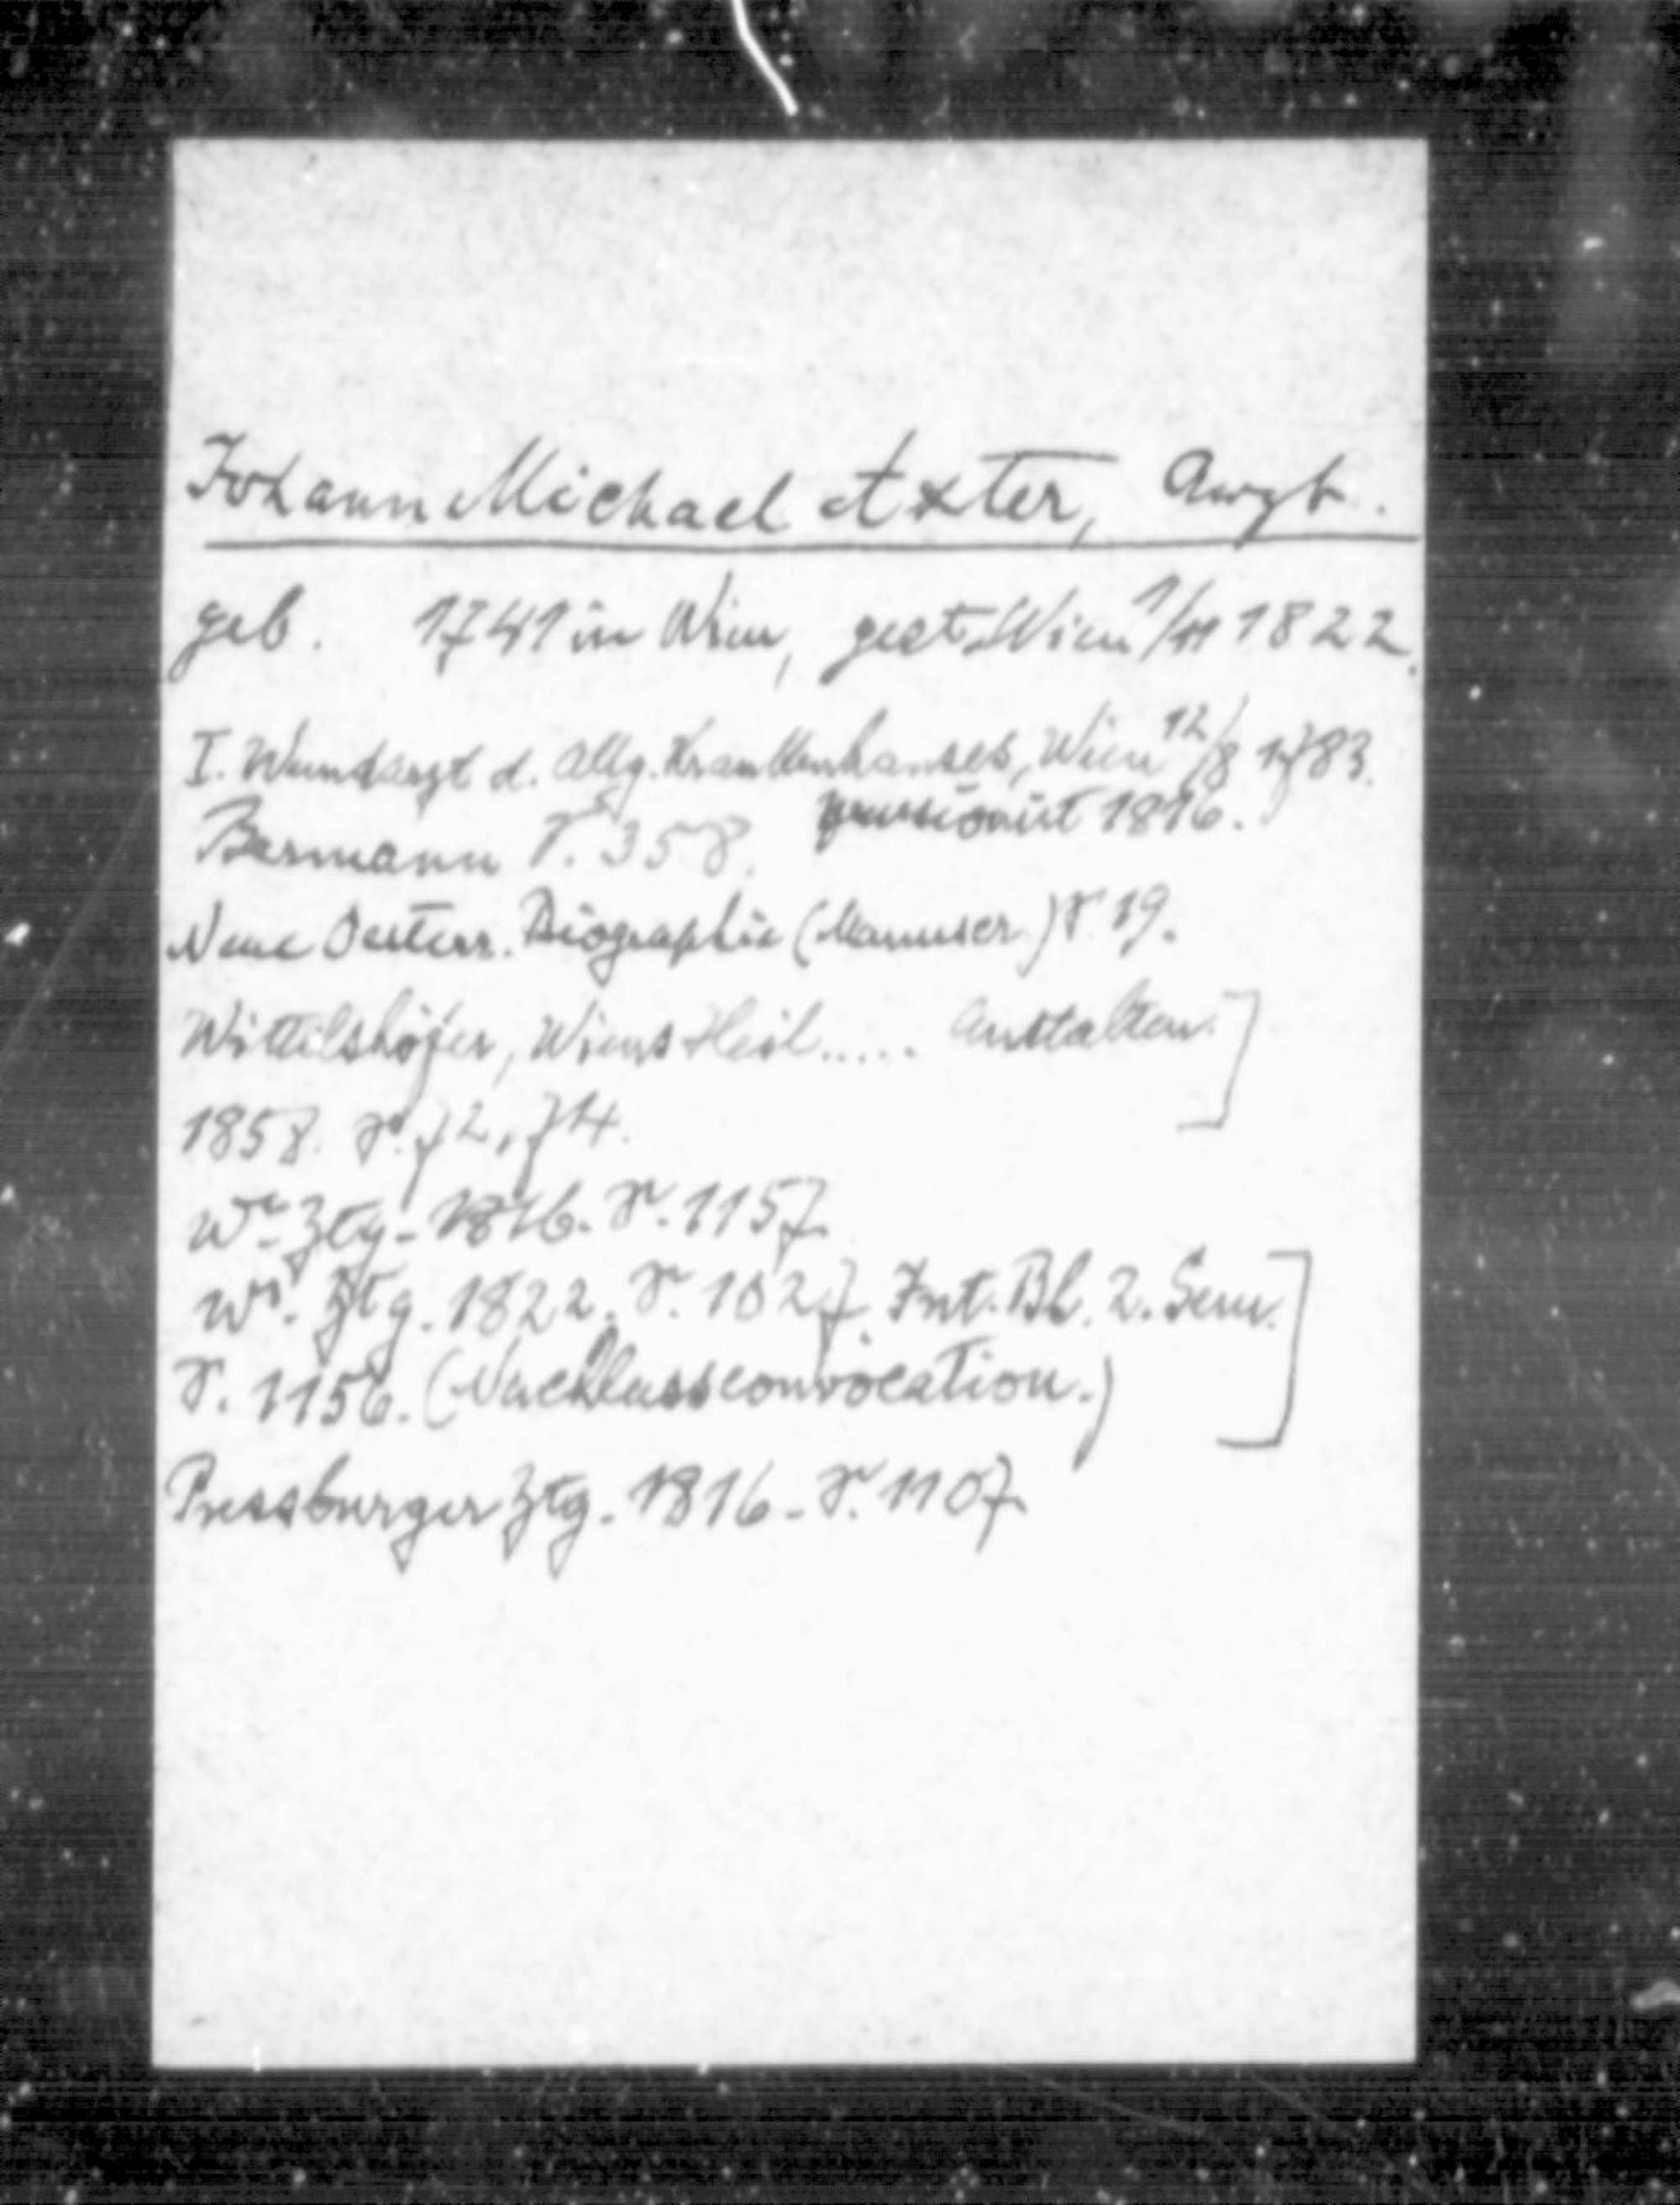 Johann Michael Axter, Arzt.
geb. 1741 in Wien, gest. Wien 1/11 1822.
I. Wundarzt d. Allg. Krankenhauses, Wien 12/8 1783.
pensionirt 1816.
Bermann S. 358.
Neue Oesterr. Biographie (Manuscr.) S. 19.
Wittelshöfer, Wiens Heil..... Anstalten.]
1858. S. 72, 74.
Wr. Ztg. 1816. S. 1157.
Wr. Ztg. 1822. S. 1027. Int. Bl. 2. Sem.]
S. 1156. (Nachlassconvocation.)
Pressburger Ztg. 1816. S. 1107